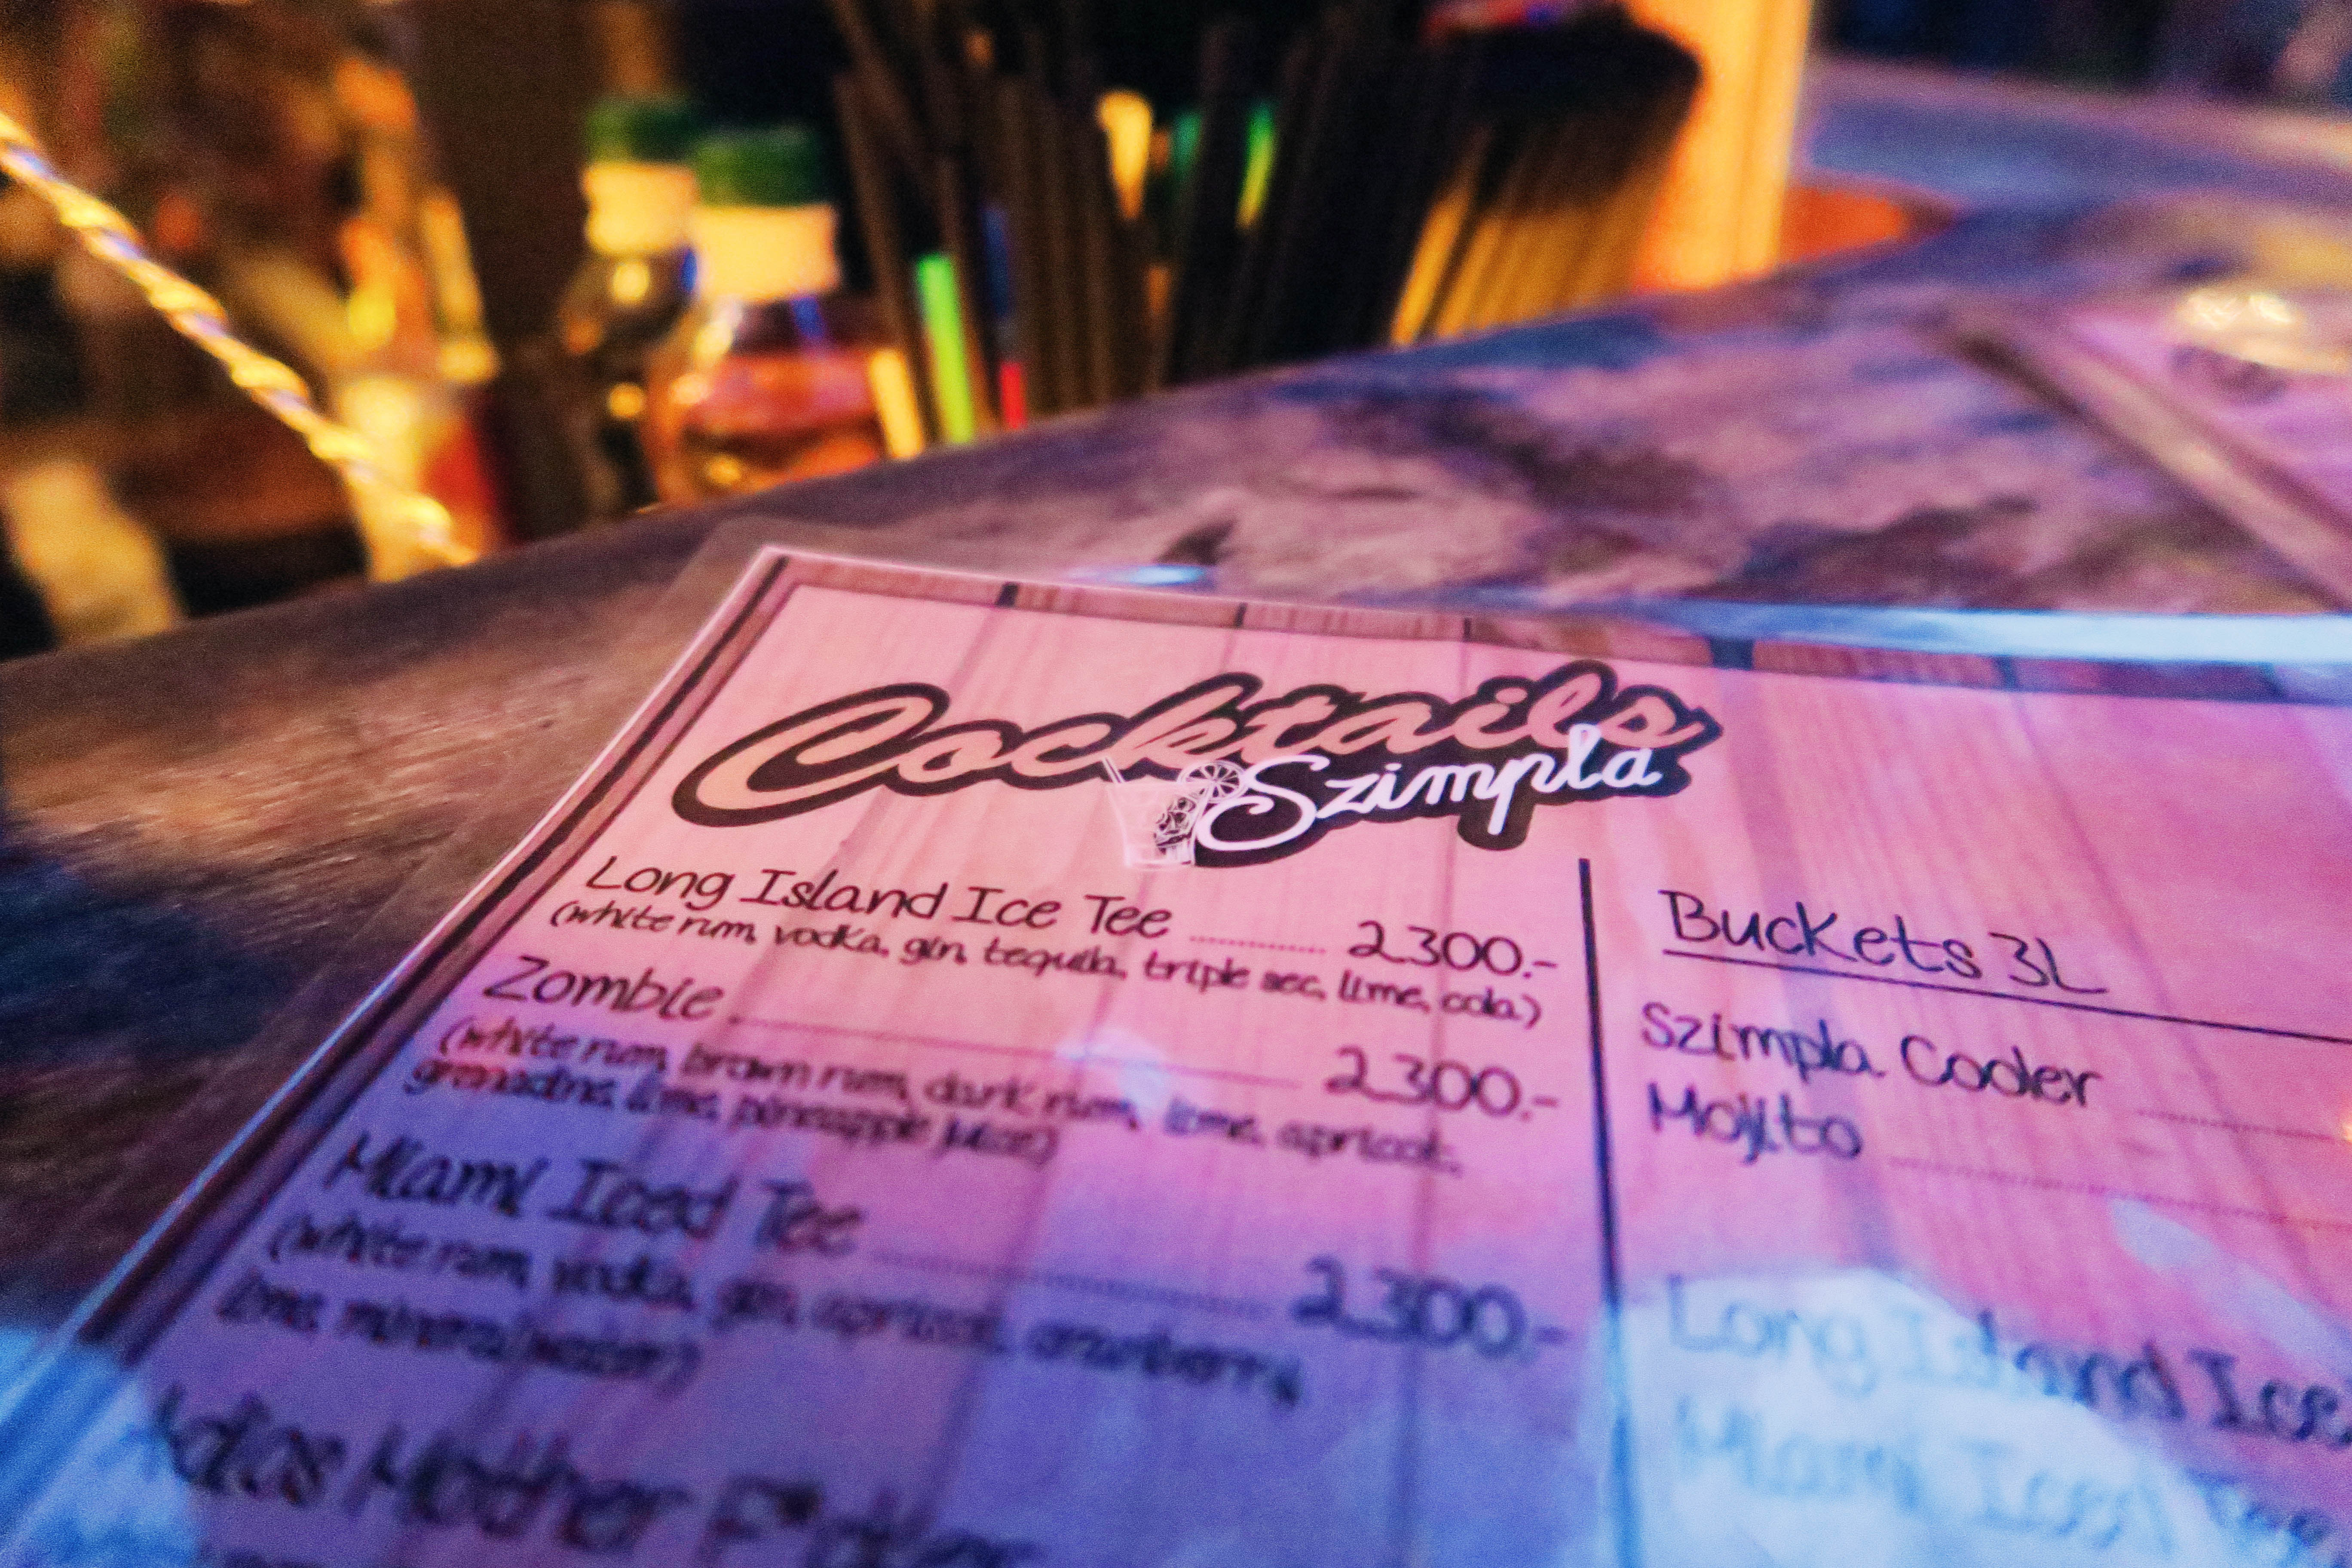 Cocktails
Szimpla
Long Island Ice Tee ........ 2300.-
(white rum, vodka, gin, tequila, triple sec, lime, cola)
Zombie ........ 2300.-
(white rum, brown rum, dark rum, lime, apricot,
grenadine, lime, pineapple juice)
Miami Iced Tee ........ 2300.-
(white rum, vodka, gin, apricot, cranberry,
lime, mineral water)
Adios Mother
Buckets 3L
Szimpla Cooler
Mojito
Long Island Ice
Miami Iced Tee